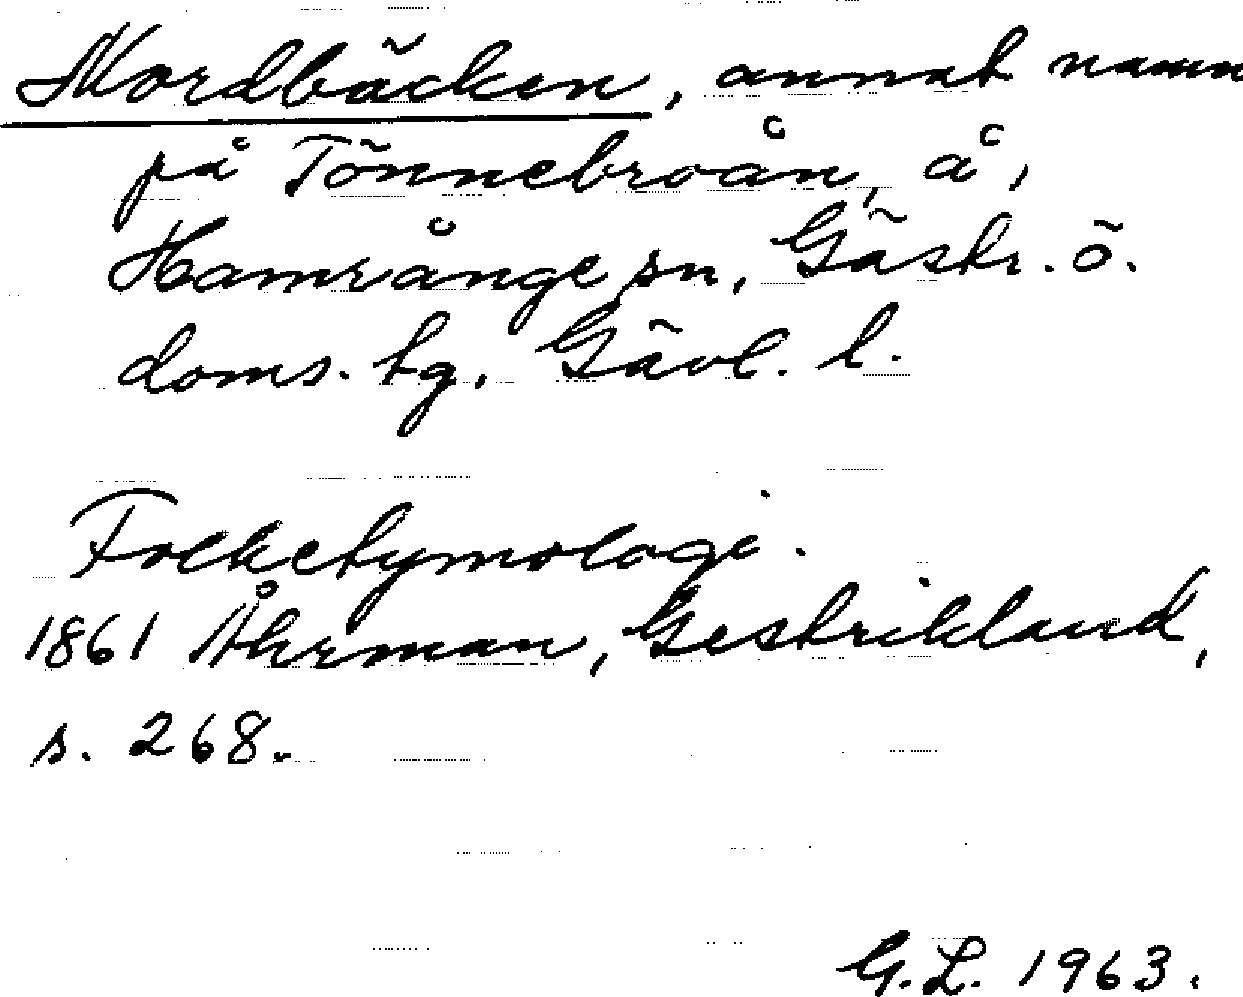 Mordbäcken, annat namn
på Tönnebroån, å,
Hamrånge sn, Gästr. ö.
doms. tg, Gävl. l.
Folketymologi.
1861 Åhrman, Gestrikland,
s. 268.
G.L. 1963.